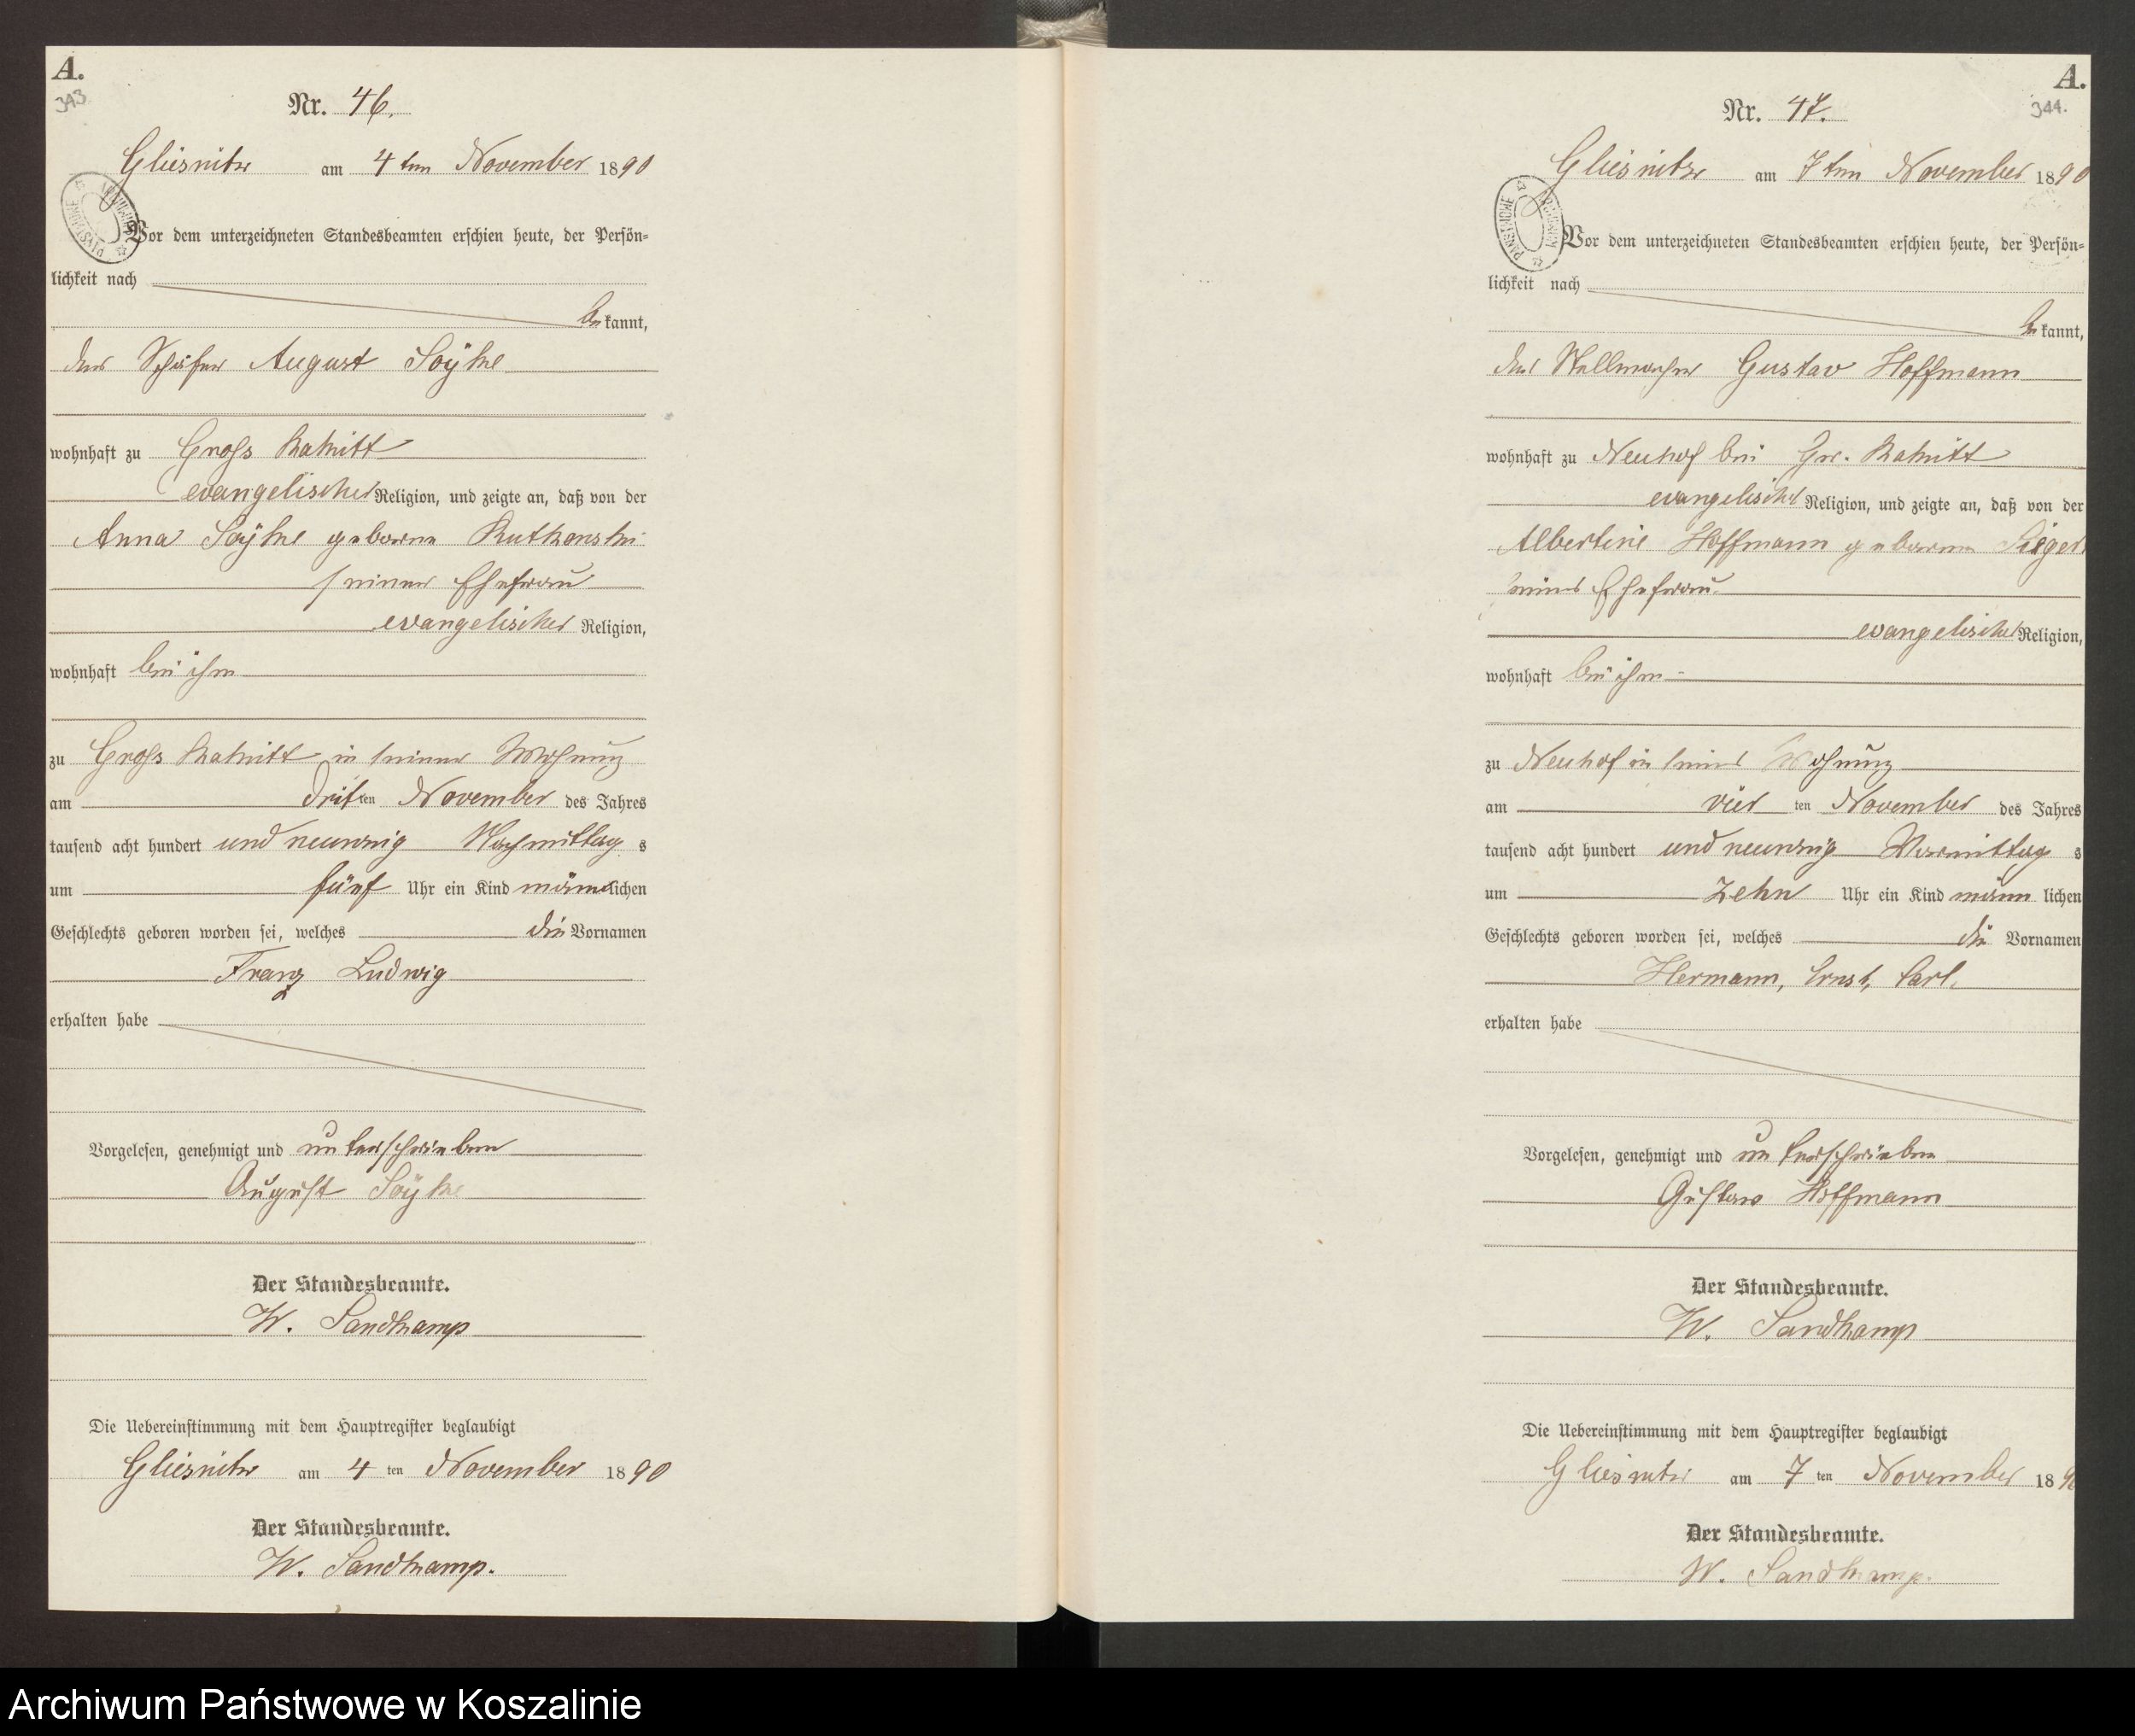 A.
343
Nr. 46.
Gliesnitz am 4ten November 1890
PAŃSTWOWE ARCHIWUM
Vor dem unterzeichneten Standesbeamten erschien heute, der Persön=
lichkeit nach
bekannt,
der Schäfer August
wohnhaft zu Groß Rakitt
evangelischer Religion, und zeigte an, daß von der
Anna geborene
seiner Ehefrau
evangelischer Religion,
wohnhaft bei ihm
zu Groß Rakitt in seiner Wohnung
am dritten November des Jahres
tausend acht hundert und neunzig Nachmittags
um fünf Uhr ein Kind männlichen
Geschlechts geboren worden sei, welches die Vornamen
Franz Ludwig
erhalten habe
Vorgelesen, genehmigt und unterschrieben
August
Der Standesbeamte.
W. Sandkamp
Die Uebereinstimmung mit dem Hauptregister beglaubigt
Gliesnitz am 4ten November 1890
Der Standesbeamte.
W. Sandkamp.
A.
344.
Nr. 47.
Gliesnitz am 7ten November 1890
PAŃSTWOWE ARCHIWUM
Vor dem unterzeichneten Standesbeamten erschien heute, der Persön=
lichkeit nach
bekannt,
der Stellmacher Gustav Hoffmann
wohnhaft zu Neuhof bei Gr. Rakitt
evangelischer Religion, und zeigte an, daß von der
Albertine Hoffmann geborene
seiner Ehefrau
evangelischer Religion,
wohnhaft bei ihm
zu Neuhof in seiner Wohnung
am vier ten November des Jahres
tausend acht hundert und neunzig Vormittags
um zehn Uhr ein Kind männlichen
Geschlechts geboren worden sei, welches die Vornamen
Hermann, Ernst, Carl.
erhalten habe
Vorgelesen, genehmigt und unterschrieben
Gustav Hoffmann
Der Standesbeamte.
W. Sandkamp
Die Uebereinstimmung mit dem Hauptregister beglaubigt
Gliesnitz am 7ten November 1890
Der Standesbeamte.
W. Sandkamp.
Archiwum Państwowe w Koszalinie